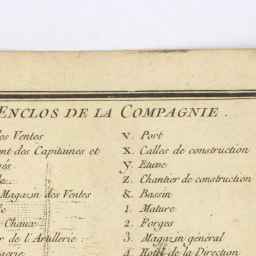 ENCLOS DE LA COMPAGNIE.
des Ventes
des Capitaines et
Magazin des Ventes
Chaux
de l'Artillerie
v. Port
x. Calles de construction
y. Etuve
z. Chantier de construction
& Bassin
1. Mature
2. Forges
3. Magazin général
4. Hotel de la Direction